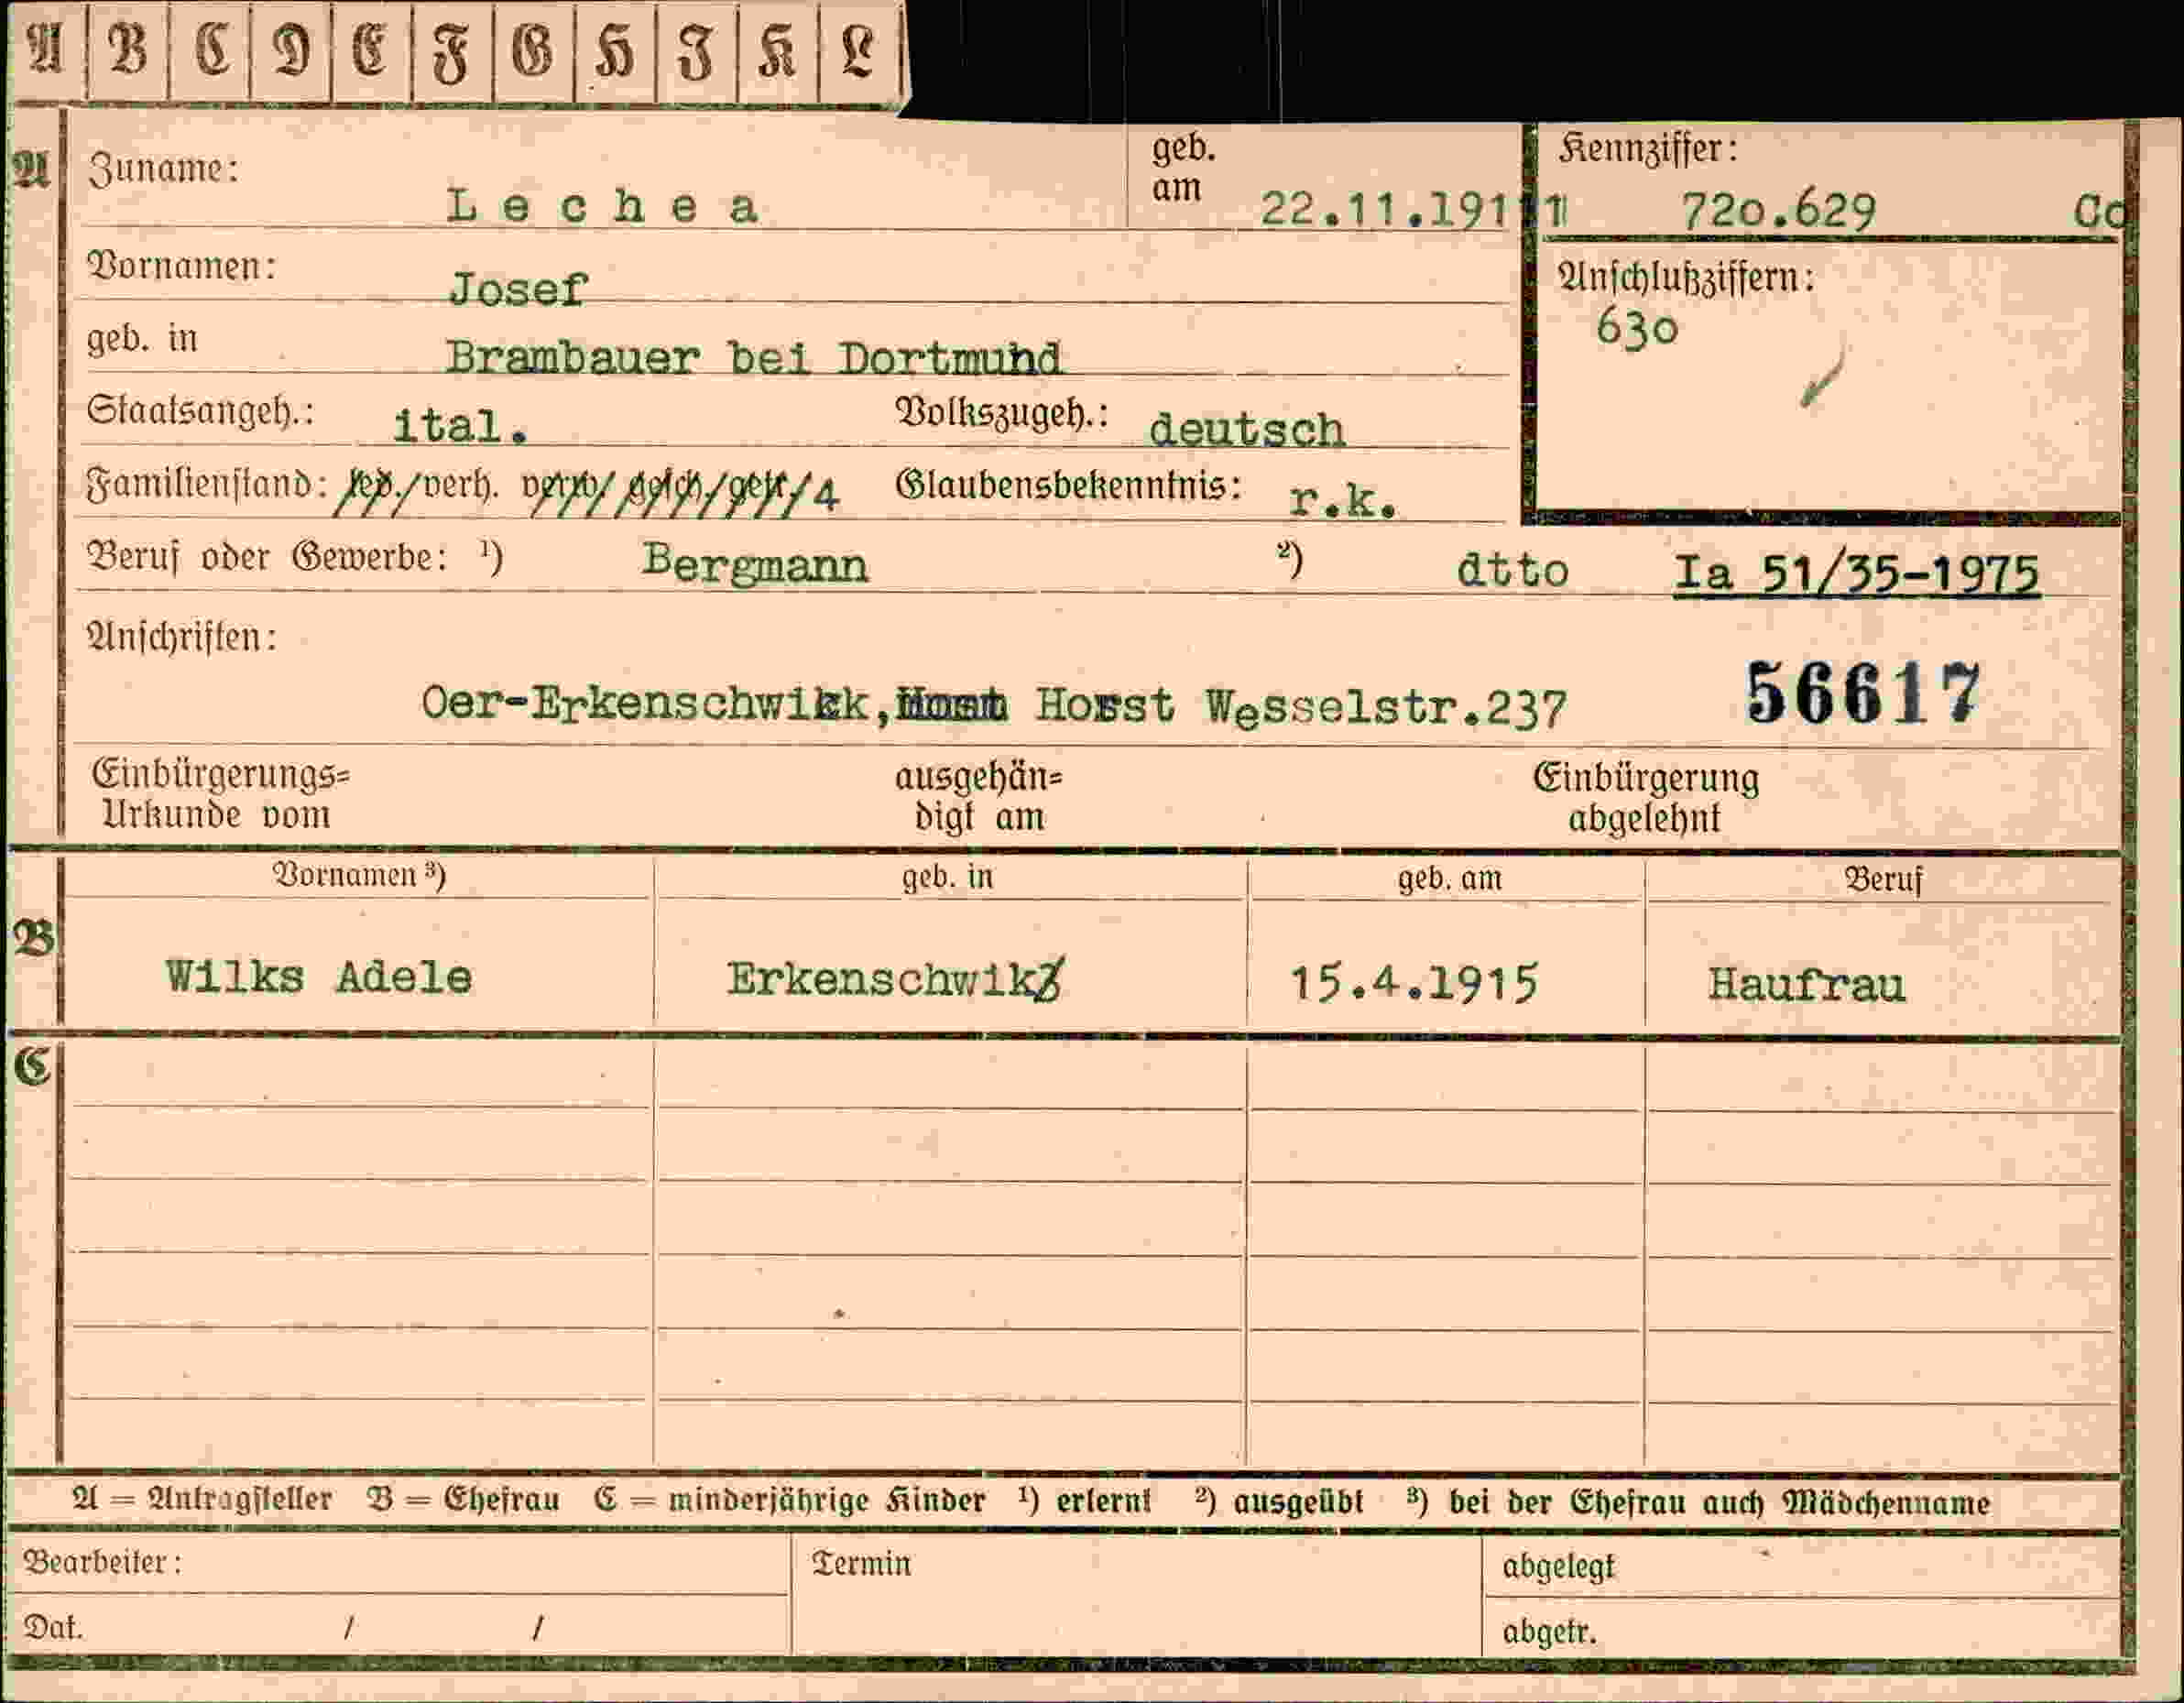 A B C D E F G H I K L
A Zuname: L e c h e a geb. am 22.11.1911 Kennziffer: 720.629
Vornamen: Josef
Anschlußziffern:
630
geb. in Brambauer bei Dortmund
Staatsangeh.: ital. Volkszugeh.: deutsch
Familienstand: led./verh. verw/ gesch/getr/4 Glaubensbekenntnis: r.k.
Beruf oder Gewerbe: ¹) Bergmann ²) dtto Ia 51/35-1975
Anschriften:
Oer-Erkenschwikk, Horst Wesselstr.237 56617
Einbürgerungs= ausgehän= Einbürgerung
Urkunde vom digt am abgelehnt
Vornamen ³) geb. in geb. am Beruf
B Wilks Adele Erkenschwik 15.4.1915 Haufrau
C
A = Antragsteller B = Ehefrau C = minderjährige Kinder ¹) erlernt ²) ausgeübt ³) bei der Ehefrau auch Mädchenname
Bearbeiter: Termin abgelegt
Dat. / / abgetr.